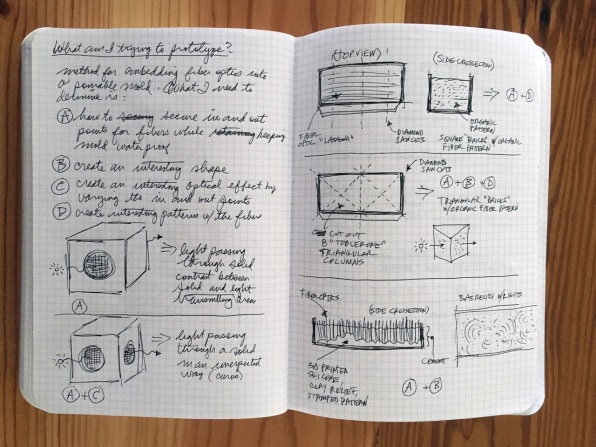 What am I trying to prototype?
method for embedding fiber optics into
a pourable mold. What I need to
determine is:
A how to secure in and out
points for fibers while keeping
mold waterproof
B create an interesting shape
C create an interesting optical effect by
varying the in and out points
D create interesting patterns w/ the fiber
light passing
through solid
contrast between
solid and light
transmitting area
A
light passing
through a solid
in an unexpected
way (curve)
A + C
(TOP VIEW)
(SIDE CROSSECTION)
A + D
FIBER
OPTIC "LASAGNA"
DIAMOND
SAW CUTS
ORGANIC
PATTERN
SQUARE "BRICKS" W/ORGANIC
FIBER PATTERN
DIAMOND
SAW CUTS
A + B + D
TRIANGULAR "BRICKS"
W/ORGANIC FIBER PATTERN
CUT OUT
8 "TOBLERONE"
TRIANGULAR
COLUMNS
FIBER OPTICS
(SIDE CROSSECTION)
BAS RELIEF
CEMENT
3D PRINTED
SILICONE,
CLAY RELIEF,
STAMPED PATTERN
A + B